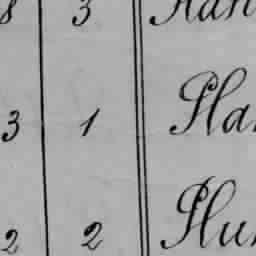 8 3 Han
3 1 Ha
2 2 Hu